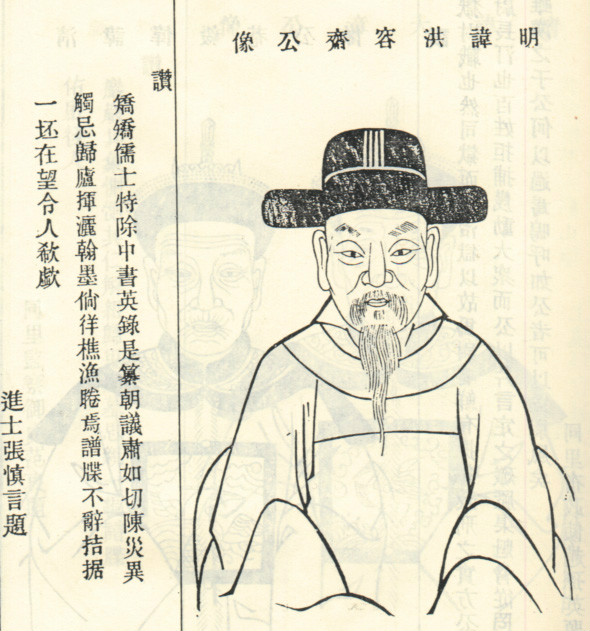 明諱洪容齋公像
讚
矯矯儒士特除中書英錄是纂朝議肅如切陳災異
觸忌歸廬揮灑翰墨倘徉樵漁睠焉譜牒不辭拮据
一坯在望令人欷歔
進士張慎言題